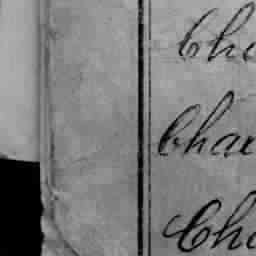 Cha
Char
Cha